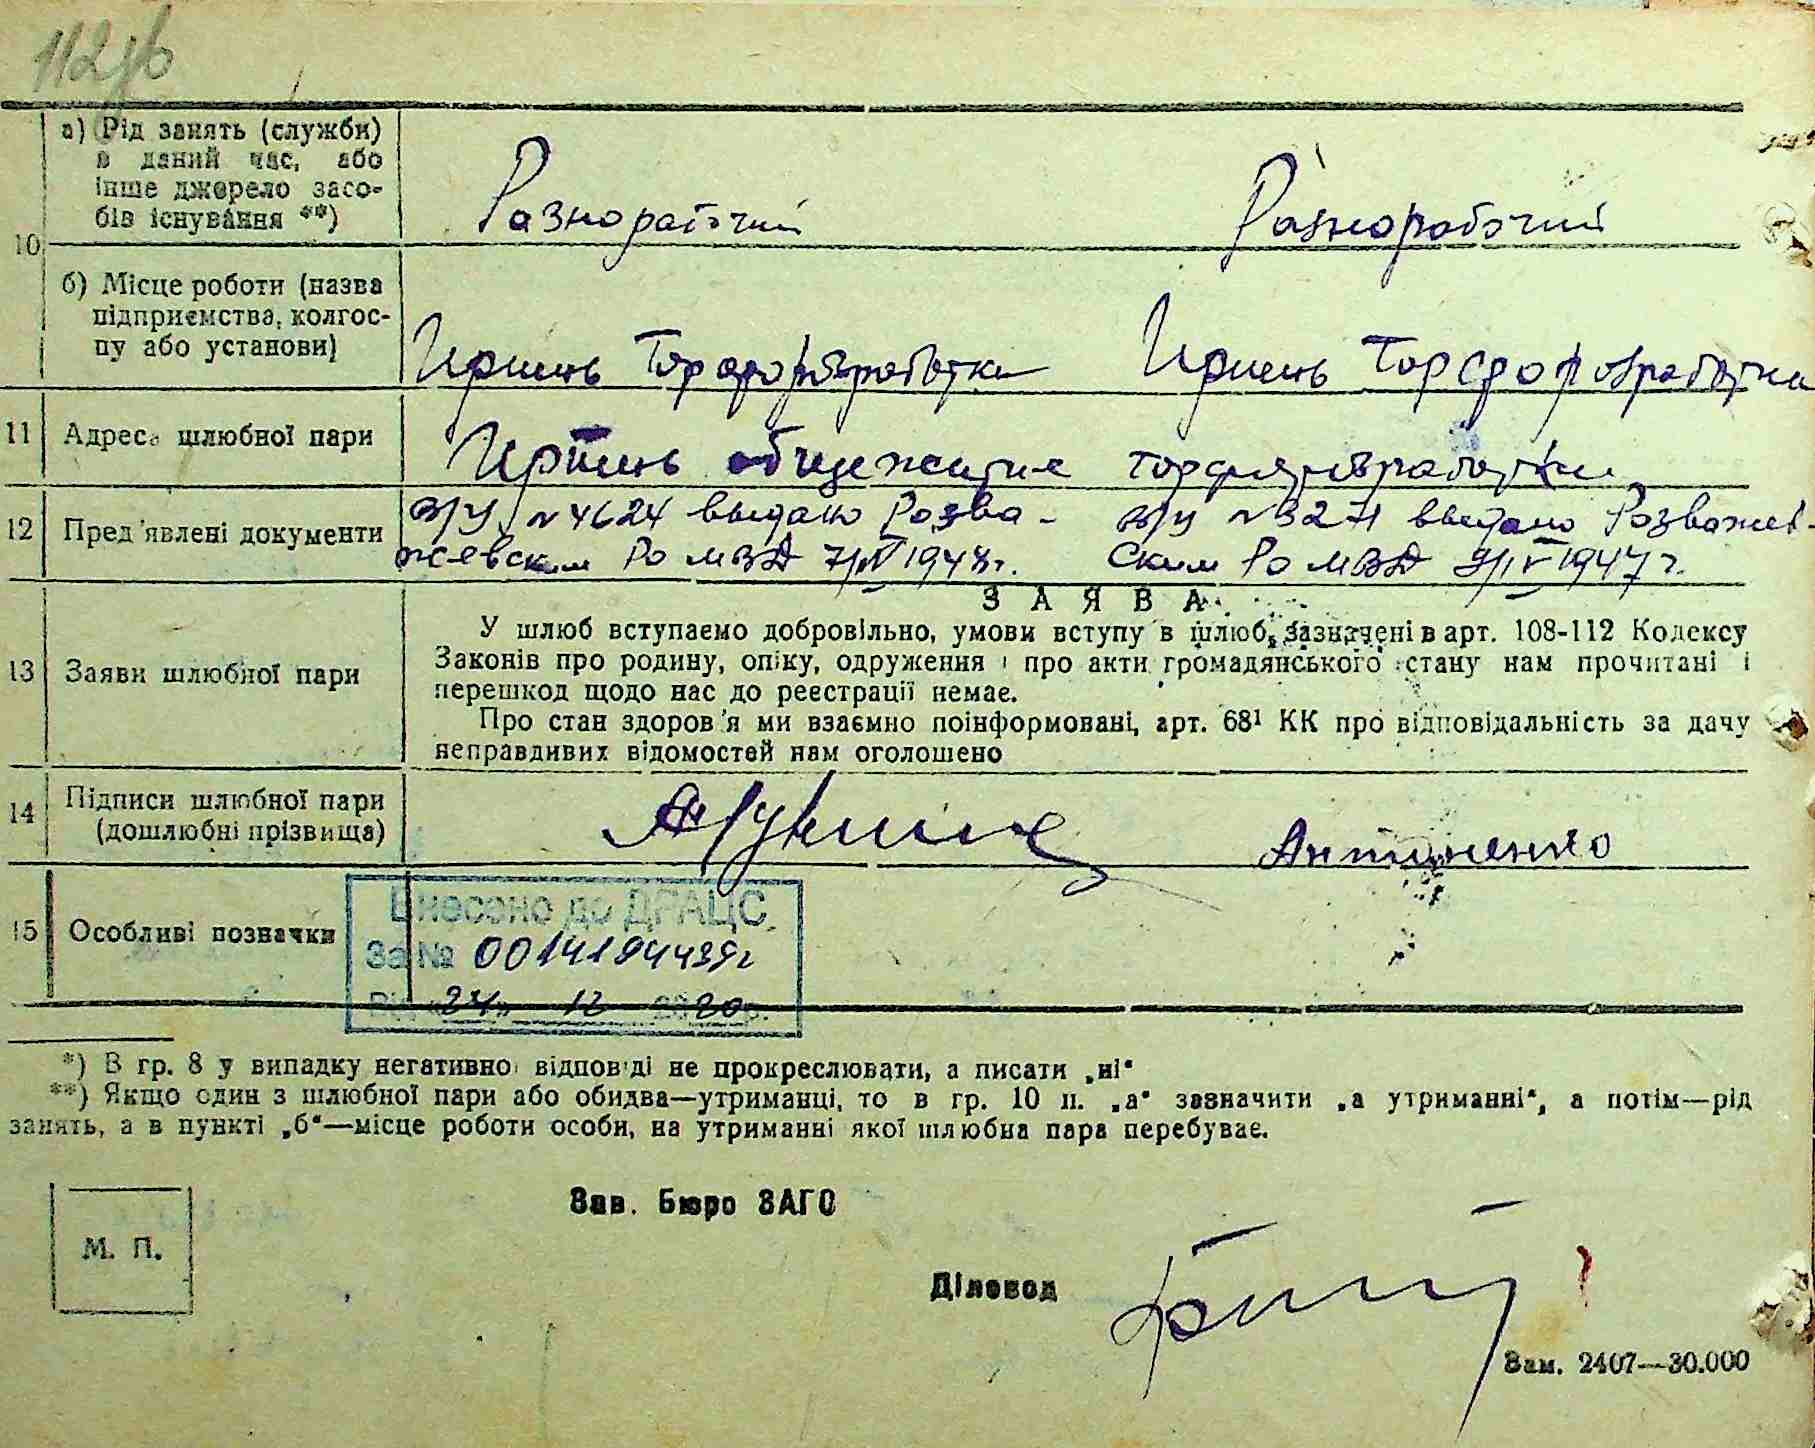 112
10
а) Рід занять (служби)
в даний час, або
інше джерело засо-
бів існування **)
Разнорабочий Разнорабочий
б) Місце роботи (назва
підприємства, колгос-
пу або установи)
Ирпень Торфоразработки Ирпень Торфоразработки
11 Адреса шлюбної пари
Ирпень общежитие торфоразработки
12 Пред'явлені документи
в/у №4624 выдано Розва-
жевским Ро МВД 1947г.
в/у №3271 выдано Розважев-
ским Ро МВД 9/IV 1947г.
ЗАЯВА
13 Заяви шлюбної пари
У шлюб вступаємо добровільно, умови вступу в шлюб, зазначені в арт. 108-112 Кодексу
Законів про родину, опіку, одруження і про акти громадянського стану нам прочитані і
перешкод щодо нас до реєстрації немає.
Про стан здоров'я ми взаємно поінформовані, арт. 68¹ КК про відповідальність за дачу
неправдивих відомостей нам оголошено
14 Підписи шлюбної пари
(дошлюбні прізвища)
Антоненко
15 Особливі позначки
Внесено до ДРАЦС
За № 00141944395
Від 24 12 2020р.
*) В гр. 8 у випадку негативної відповіді не прокреслювати, а писати „ні“
**) Якщо один з шлюбної пари або обидва—утриманці, то в гр. 10 п. „а“ зазначити „а утриманні“, а потім—рід
занять, а в пункті „б“—місце роботи особи, на утриманні якої шлюбна пара перебуває.
Зав. Бюро ЗАГС
М. П.
Діловод
Зам. 2407—30.000